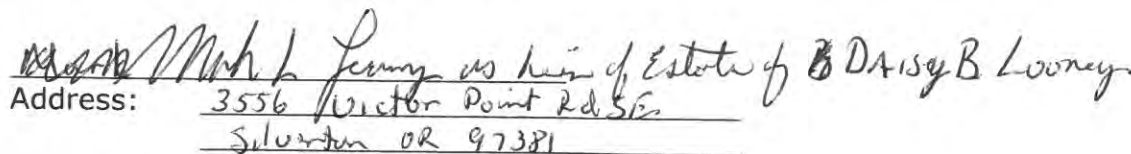 Mark L as heir of Estate of DAisy B Looney
Address: 3556 Victor Point Rd SE
Silverton OR 97381